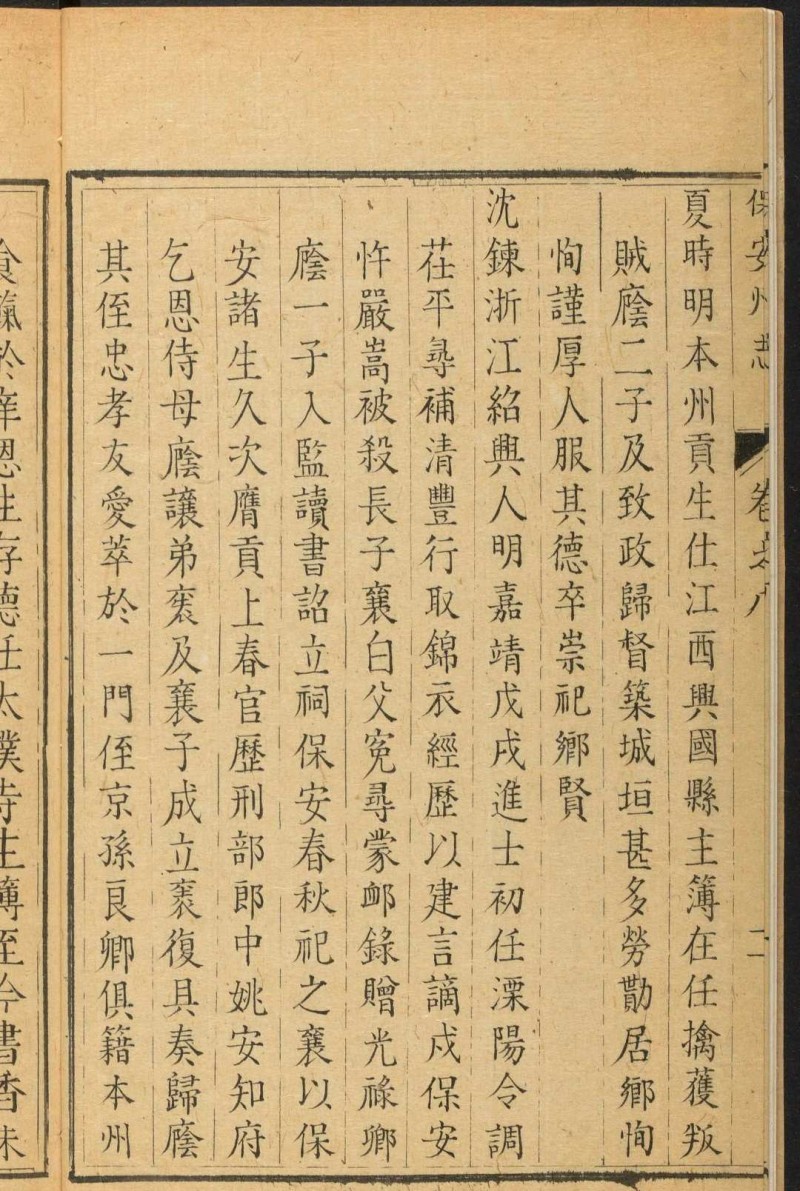 保安州志 卷之八 二
夏時明本州貢生仕江西興國縣主簿在任擒獲叛
賊廕二子及致政歸督築城垣甚多勞勩居鄉恂
恂謹厚人服其德卒崇祀鄉賢
沈鍊浙江紹興人明嘉靖戊戌進士初任溧陽令調
茌平尋補清豐行取錦衣經歷以建言謫戍保安
忤嚴嵩被殺長子襄白父寃尋蒙邮錄贈光祿卿
廕一子入監讀書詔立祠保安春秋祀之襄以保
安諸生久次膺貢上春官歷刑部郎中姚安知府
乞恩侍母廕讓弟袞及襄子成立袠復具奏歸廕
其侄忠孝友愛萃於一門侄京孫良卿俱籍本州